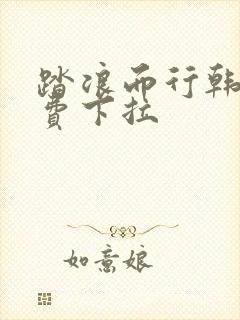 踏浪而行韩
费下拉
如意娘